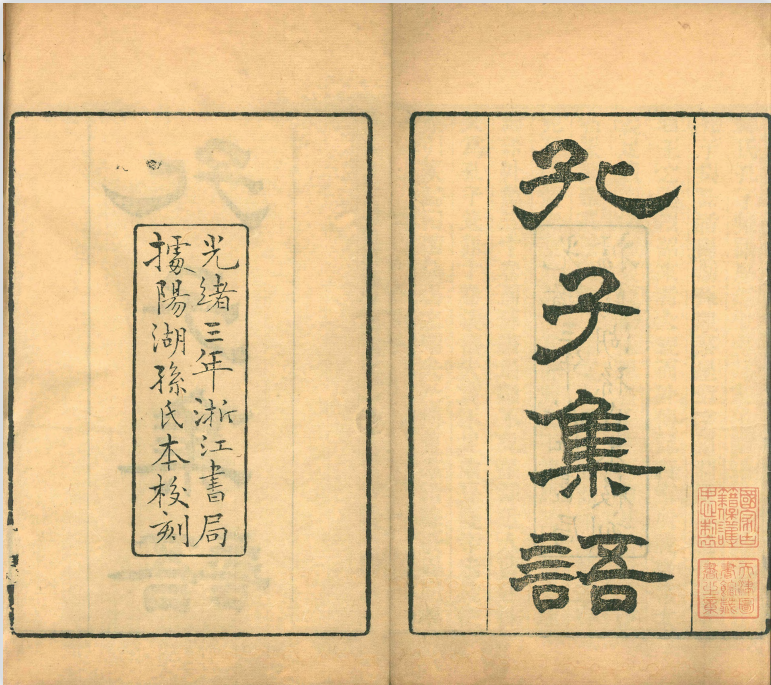 孔子集語
國家古
籍保護
中心製
天津圖
書館藏
書之章
光緒三年浙江書局
據陽湖孫氏本校刻